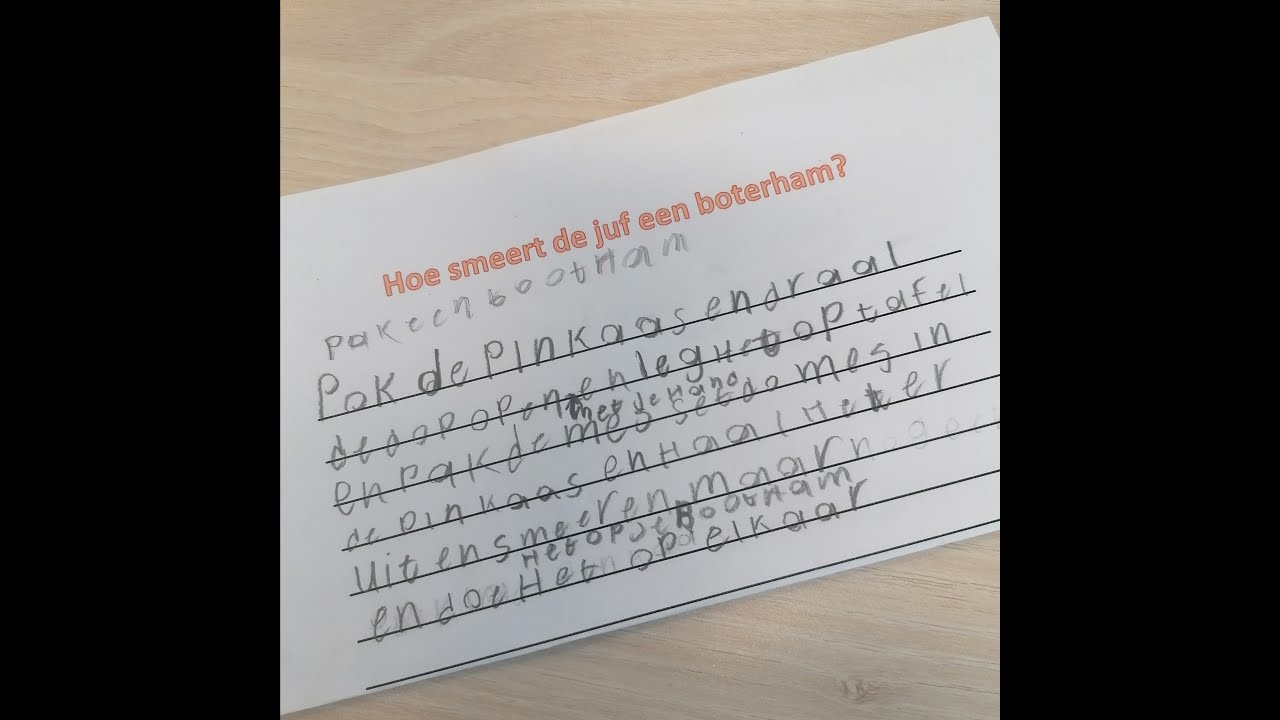 Hoe smeert de juf een boterham?
pak een bootHam
Pak de PInKaas en draal
de dop open en leg Het op tafel
met de Hand
en Pak de mes set do mes in
de pinkaas en Haal Het er
uit en smeeren maar
Het op je BootHam
en doe Het op elkaar